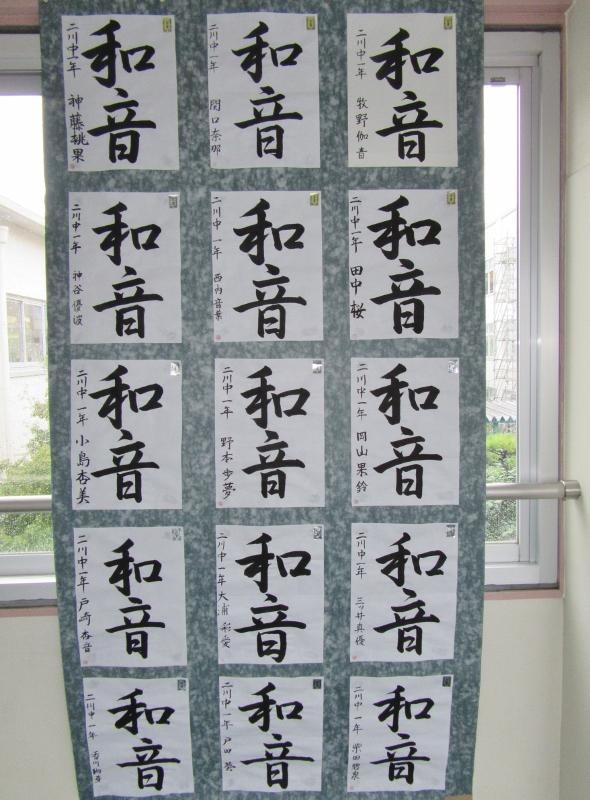 和音
二川中一年 神藤桃果
和音
二川中一年 関口奈那
和音
二川中一年 牧野伽音
和音
二川中一年 神谷優波
和音
二川中一年 西内音葉
和音
二川中一年 田中桜
和音
二川中一年 小島杏美
和音
二川中一年 野本歩夢
和音
二川中一年 岡山果鈴
和音
二川中一年 戸崎杏音
和音
二川中一年 大浦彩愛
和音
二川中一年 三ッ井真優
和音
二川中一年
和音
二川中一年 戸田葵
和音
二川中一年 柴田